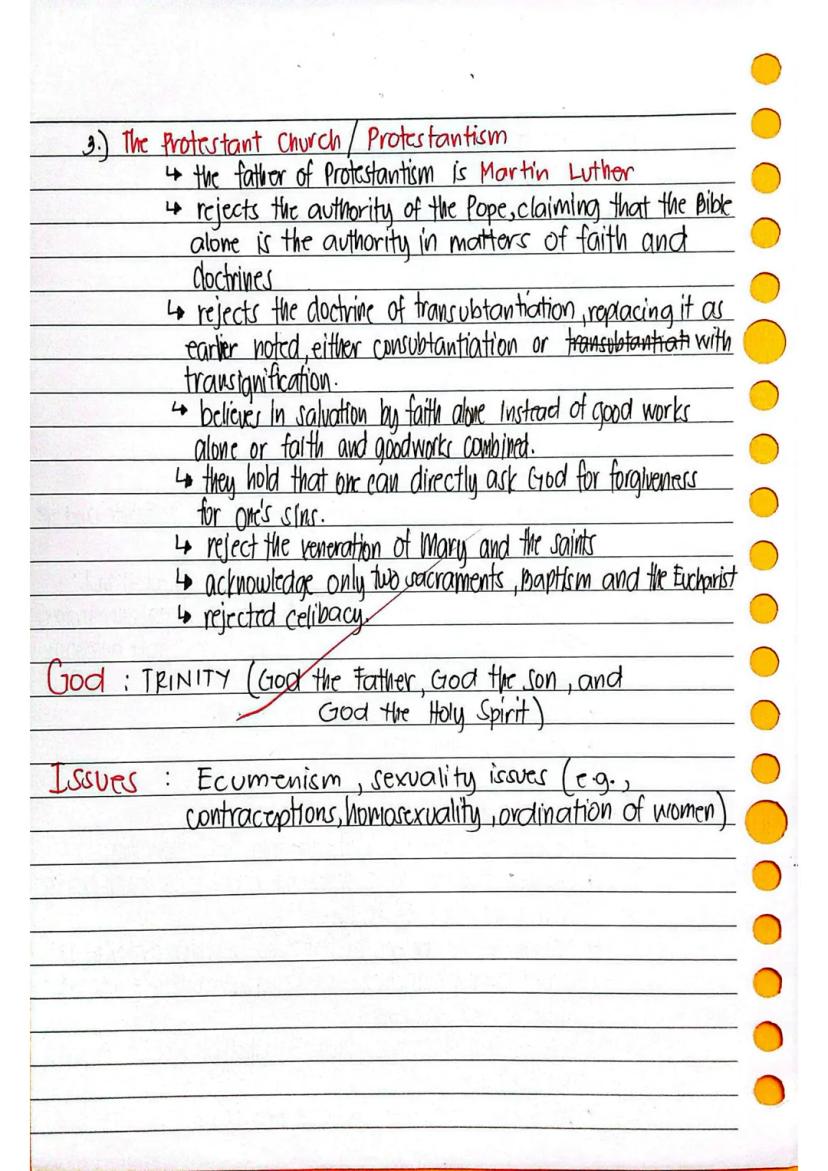 3.) The Protestant Church / Protestantism
↳ the father of Protestantism is Martin Luther
↳ rejects the authority of the Pope, claiming that the Bible
alone is the authority in matters of faith and
doctrines
↳ rejects the doctrine of transubtantiation, replacing it as
earlier noted, either consubtantiation or transubtantiati with
transignification.
↳ believes in salvation by faith alone instead of good works
alone or faith and goodworks combined.
↳ they hold that one can directly ask God for forgiveness
for one's sins.
↳ reject the veneration of Mary and the saints
↳ acknowledge only two sacraments, Baptism and the Eucharist
↳ rejected celibacy.
God : TRINITY (God the Father, God the son, and
God the Holy Spirit)
Issues : Ecumenism, sexuality issues (e.g.,
contraceptions, homosexuality, ordination of women)